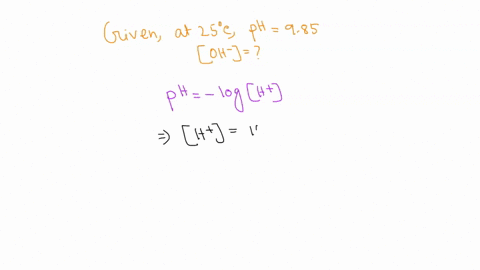 Given, at 25°C, pH = 9.85
[OH-] = ?
pH = -log [H+]
⇒ [H+] = 1